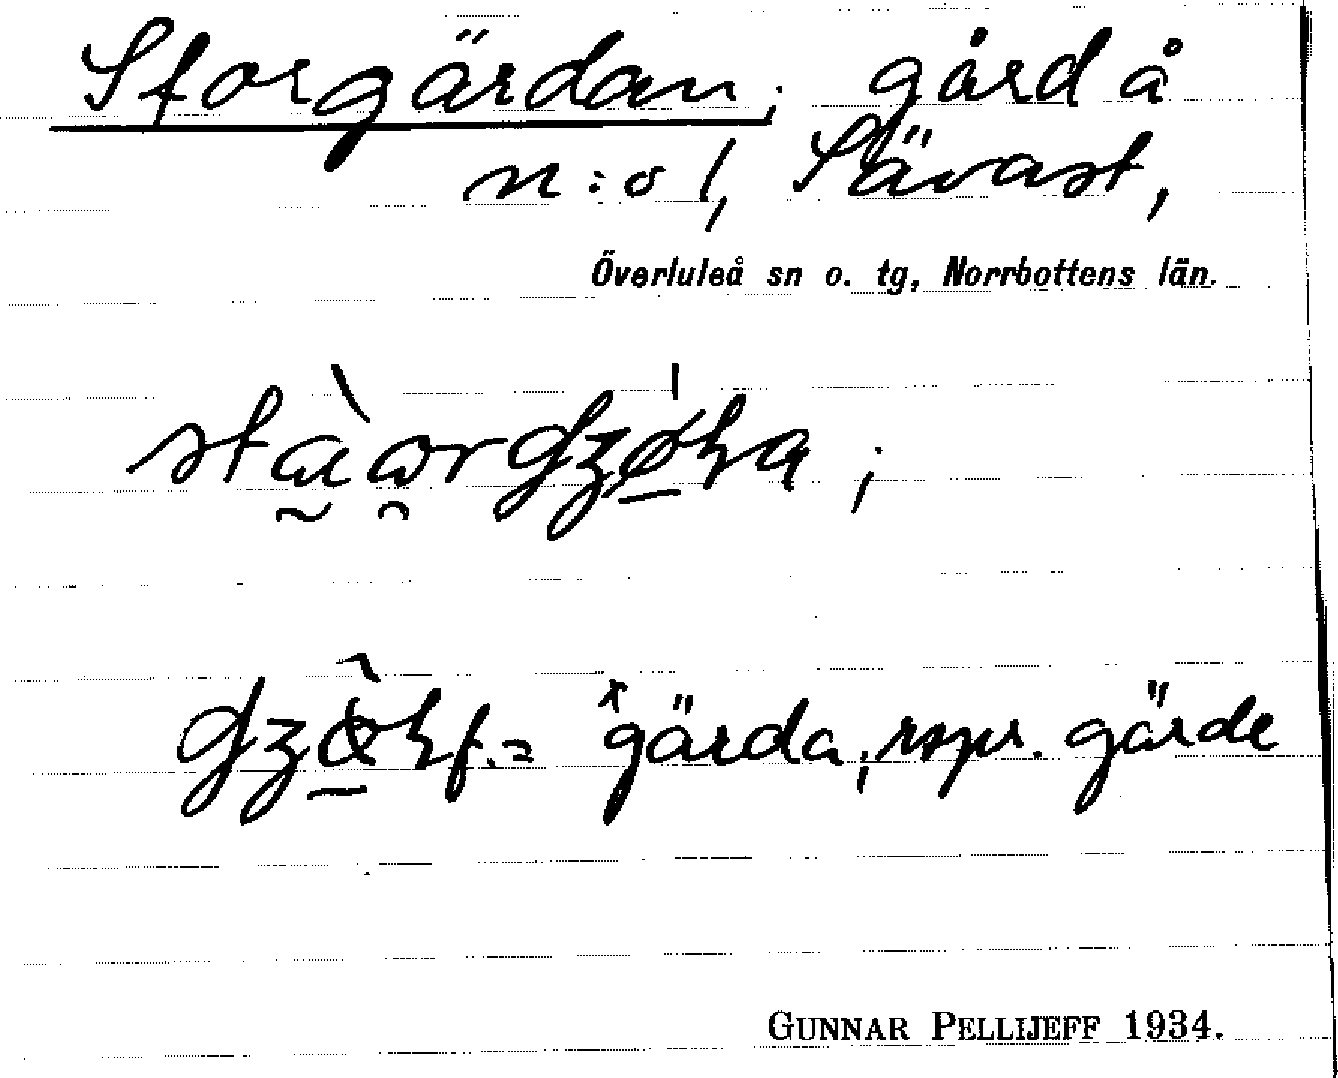 Storgärdan; gård å
n:o 1, Sävast,
Överluleå sn o. tg, Norrbottens län.
f. = *gärda, rspr. gärde
GUNNAR PELLIJEFF 1934.